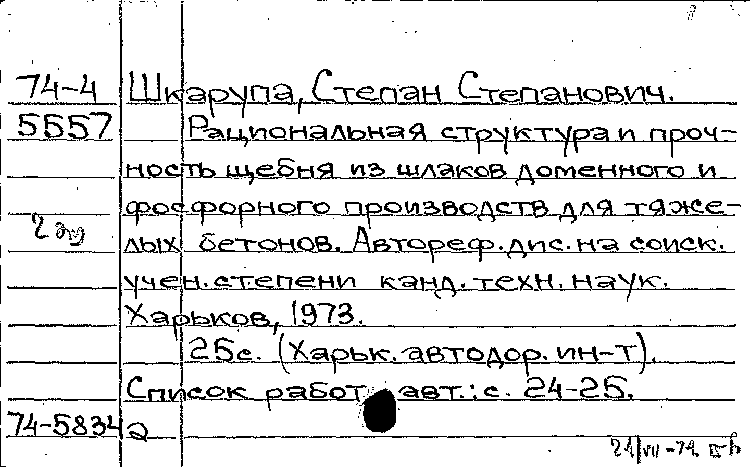 74-4 Шкарупа, Степан Степанович.
5557 Рациональная структура и проч-
ность щебня из шлаков доменного и
фосфорного производств для тяже-
2
лых бетонов. Автореф. дис. на соиск.
учен. степени канд. техн. наук.
Харьков, 1973.
25с. (Харьк. автодор. ин-т).
Список работ авт.: с. 24-25.
74-5834а